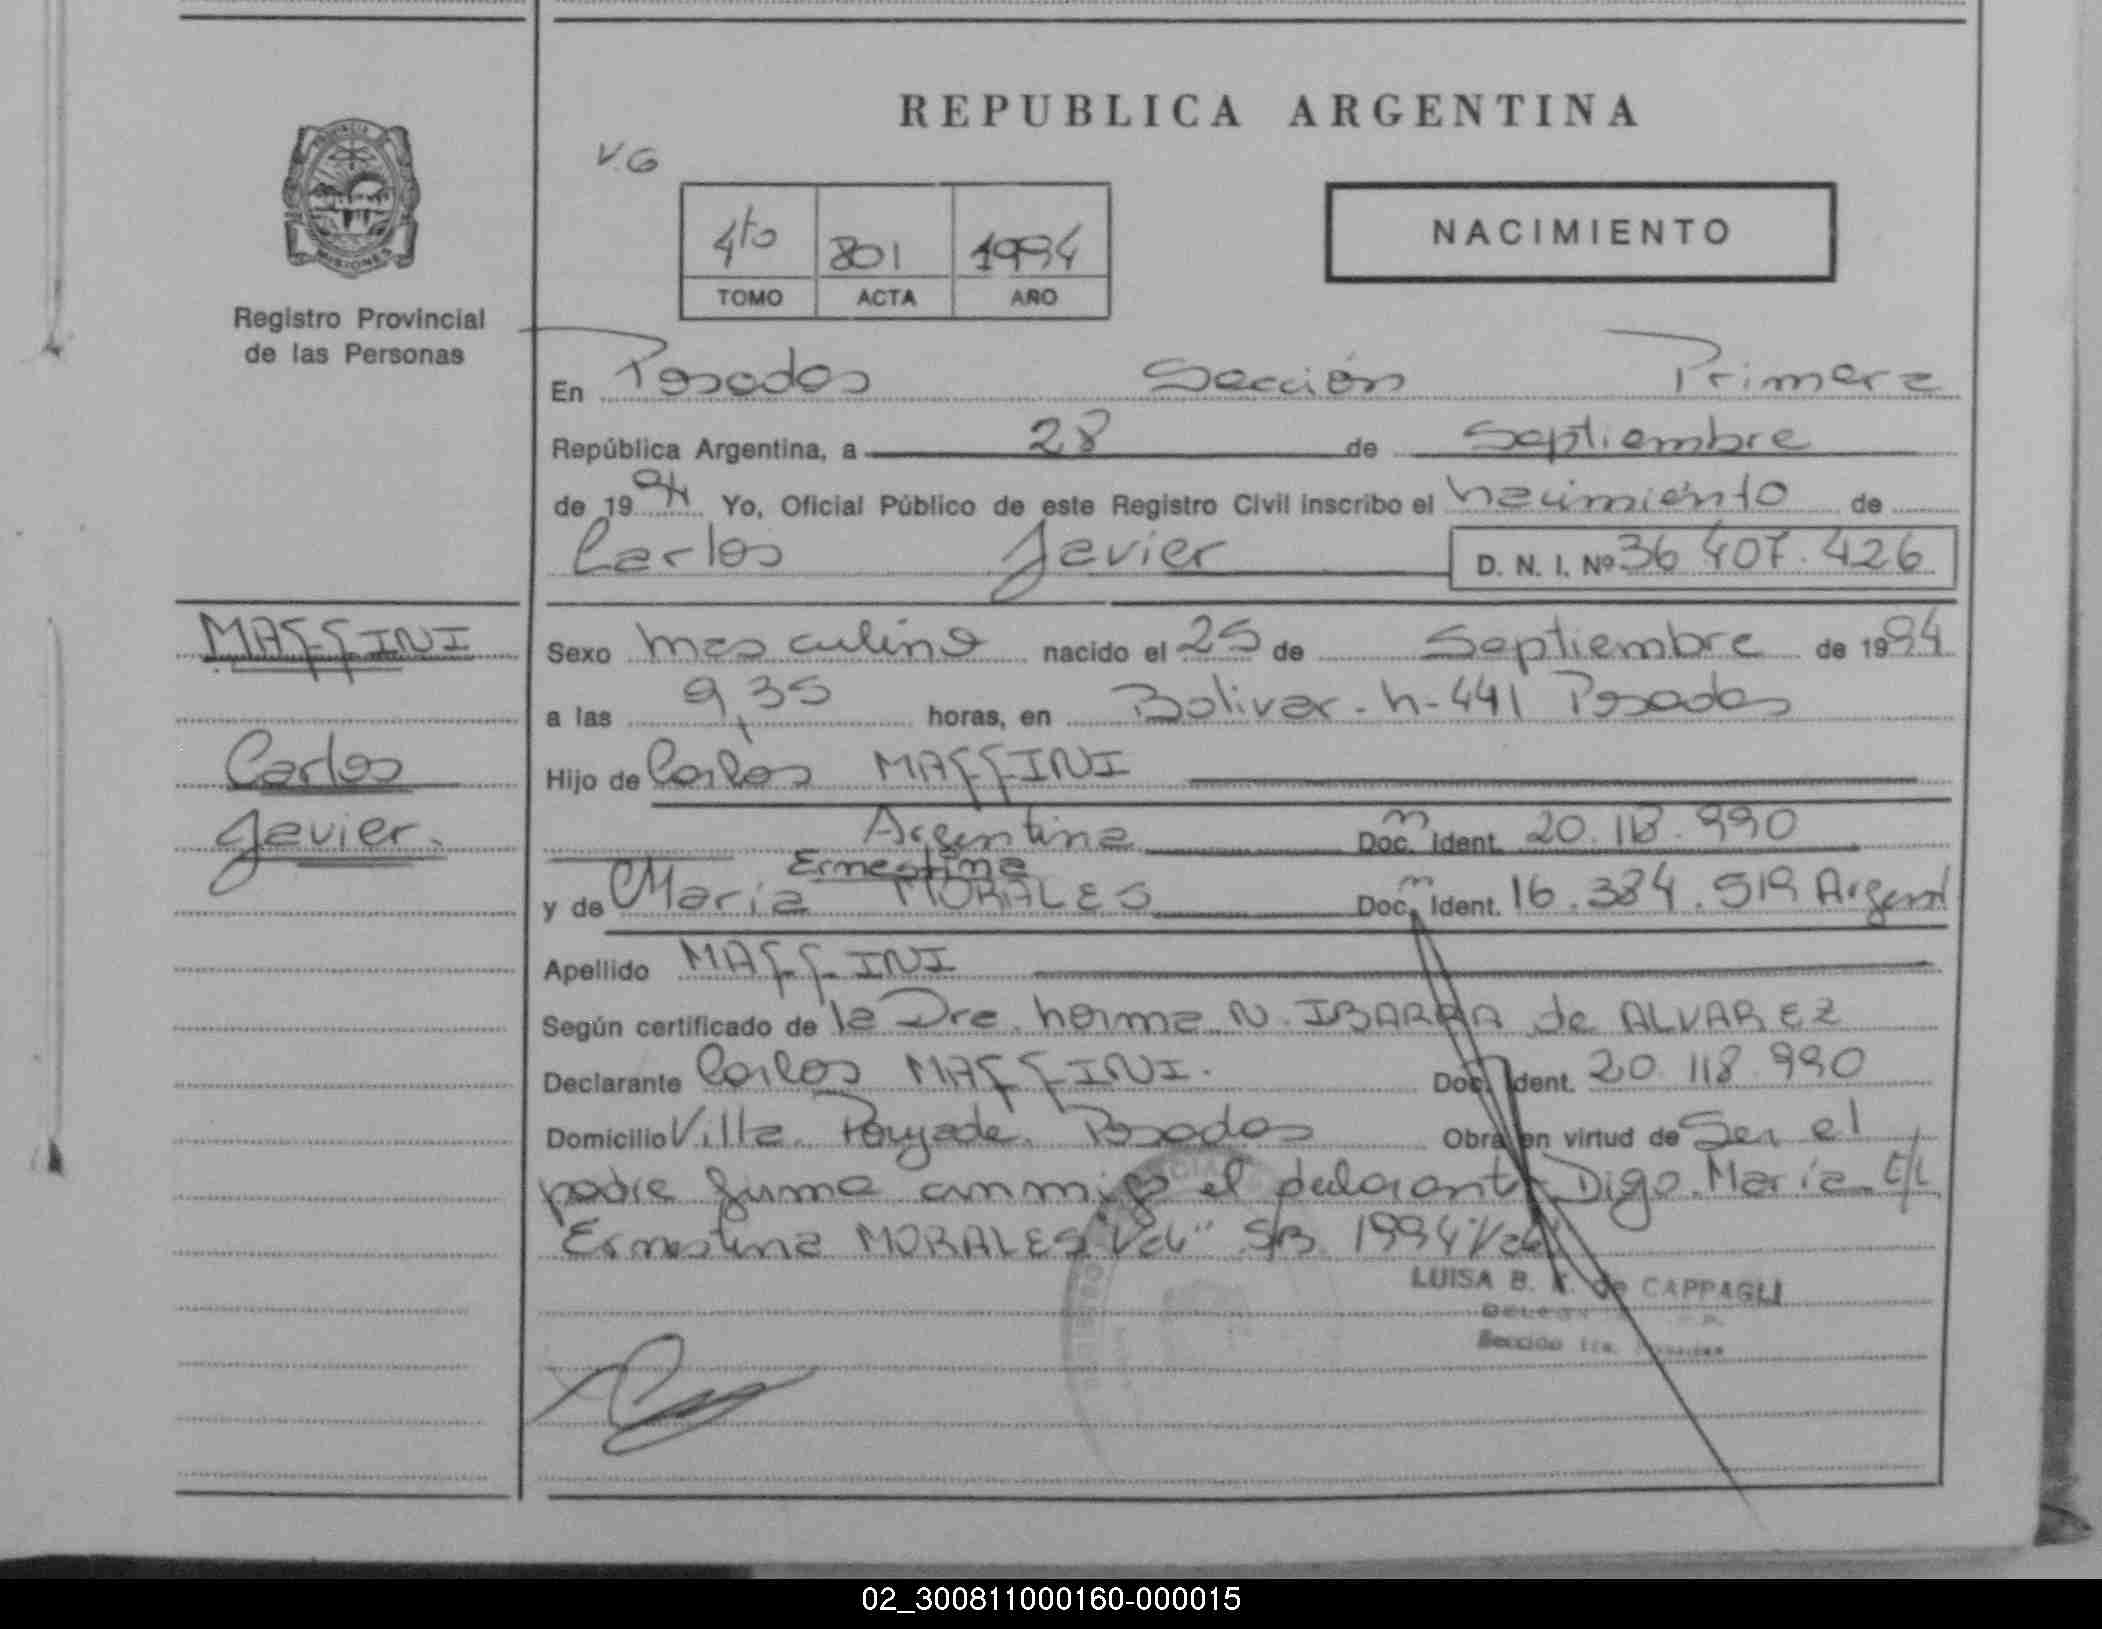 REPUBLICA ARGENTINA
V.G
4to 801 1994
TOMO ACTA AÑO
NACIMIENTO
PROVINCIA
MISIONES
Registro Provincial
de las Personas
En Posadas Sección Primera
República Argentina, a 28 de Septiembre
de 1994 Yo, Oficial Público de este Registro Civil inscribo el nacimiento de
Carlos Javier D. N. I. Nº 36 407.426
MAFFINI
Carlos
Javier.
Sexo masculino nacido el 25 de Septiembre de 1994
a las 9,35 horas, en Bolivar - n- 441 Posadas
Hijo de Carlos MAFFINI
Argentina Doc. m Ident. 20.118.990
Ernestina
y de Maria MORALES Doc. m Ident. 16.384.519 Argent
Apellido MAFFINI
Según certificado de la Dra. Norma N. IBARRA de ALVAREZ
Declarante Carlos MAFFINI. Doc. Ident. 20 118.990
Domicilio Villa Poujade. Posadas Obra en virtud de Ser el
padre firma conmigo el declarante Digo. María E/L
"Ernestina MORALES Vale" S/B 1994 "Vale"
LUISA B. de CAPPAGLI
Sección 1ra.
02_300811000160-000015